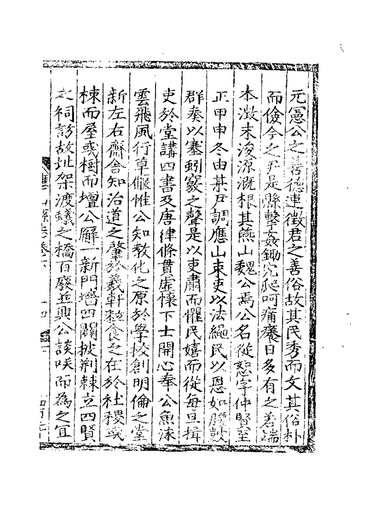 元憲公之善德連徵君之善俗故其民秀而文其俗朴
而儉今之尹是縣擊姦鋤宄爬呵痛癢日多有之若端
本澂末浚源溉根其燕山魏公焉公名從恕字仲賢至
正甲申冬由某尹調應山束吏以法繩民以恩如勝鼓
群奏以塞蚓竅之聲是以吏肅而懼民嬉而從每旦揖
吏於堂講四書及唐律條貫虛懷下士開心奉公魚泳
雲飛風行草偃惟公知教化之原於學校創明倫之堂
新左右齋舍知治道之肇於羲軒粒食之在於社稷或
棟而屋或樹而壇公廨一新門墻四闢披荊棘立四賢
之祠訪故址架渡蟻之橋百廢並興公談咲而為之宜